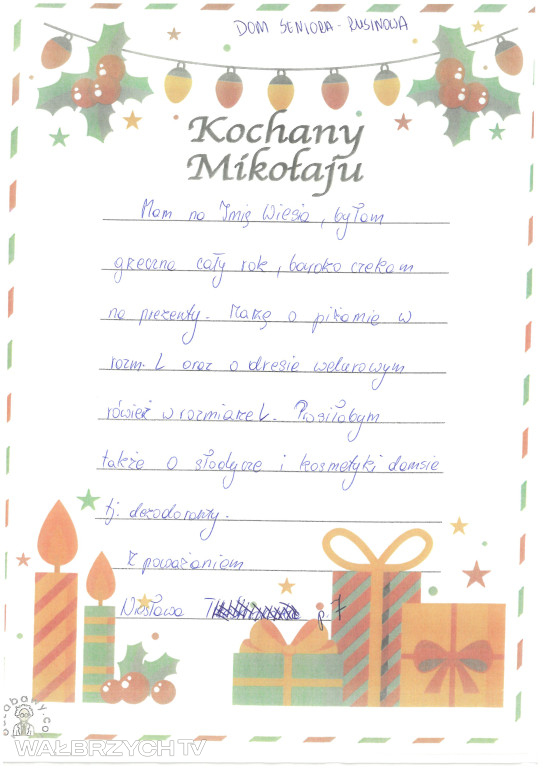 DOM SENIORA - RUSINOWA
Kochany
Mikołaju
Mam na Imię Wiesia, byłam
grzeczna cały rok, bardzo czekam
na prezenty. Marzę o piżamie w
rozm. L oraz o dresie welurowym
również w rozmiarze L. Prosiłabym
także o słodycze i kosmetyki damskie
tj. dezodoranty.
Z poważaniem
Wiesława T p. 7
WAŁBRZYCH TV